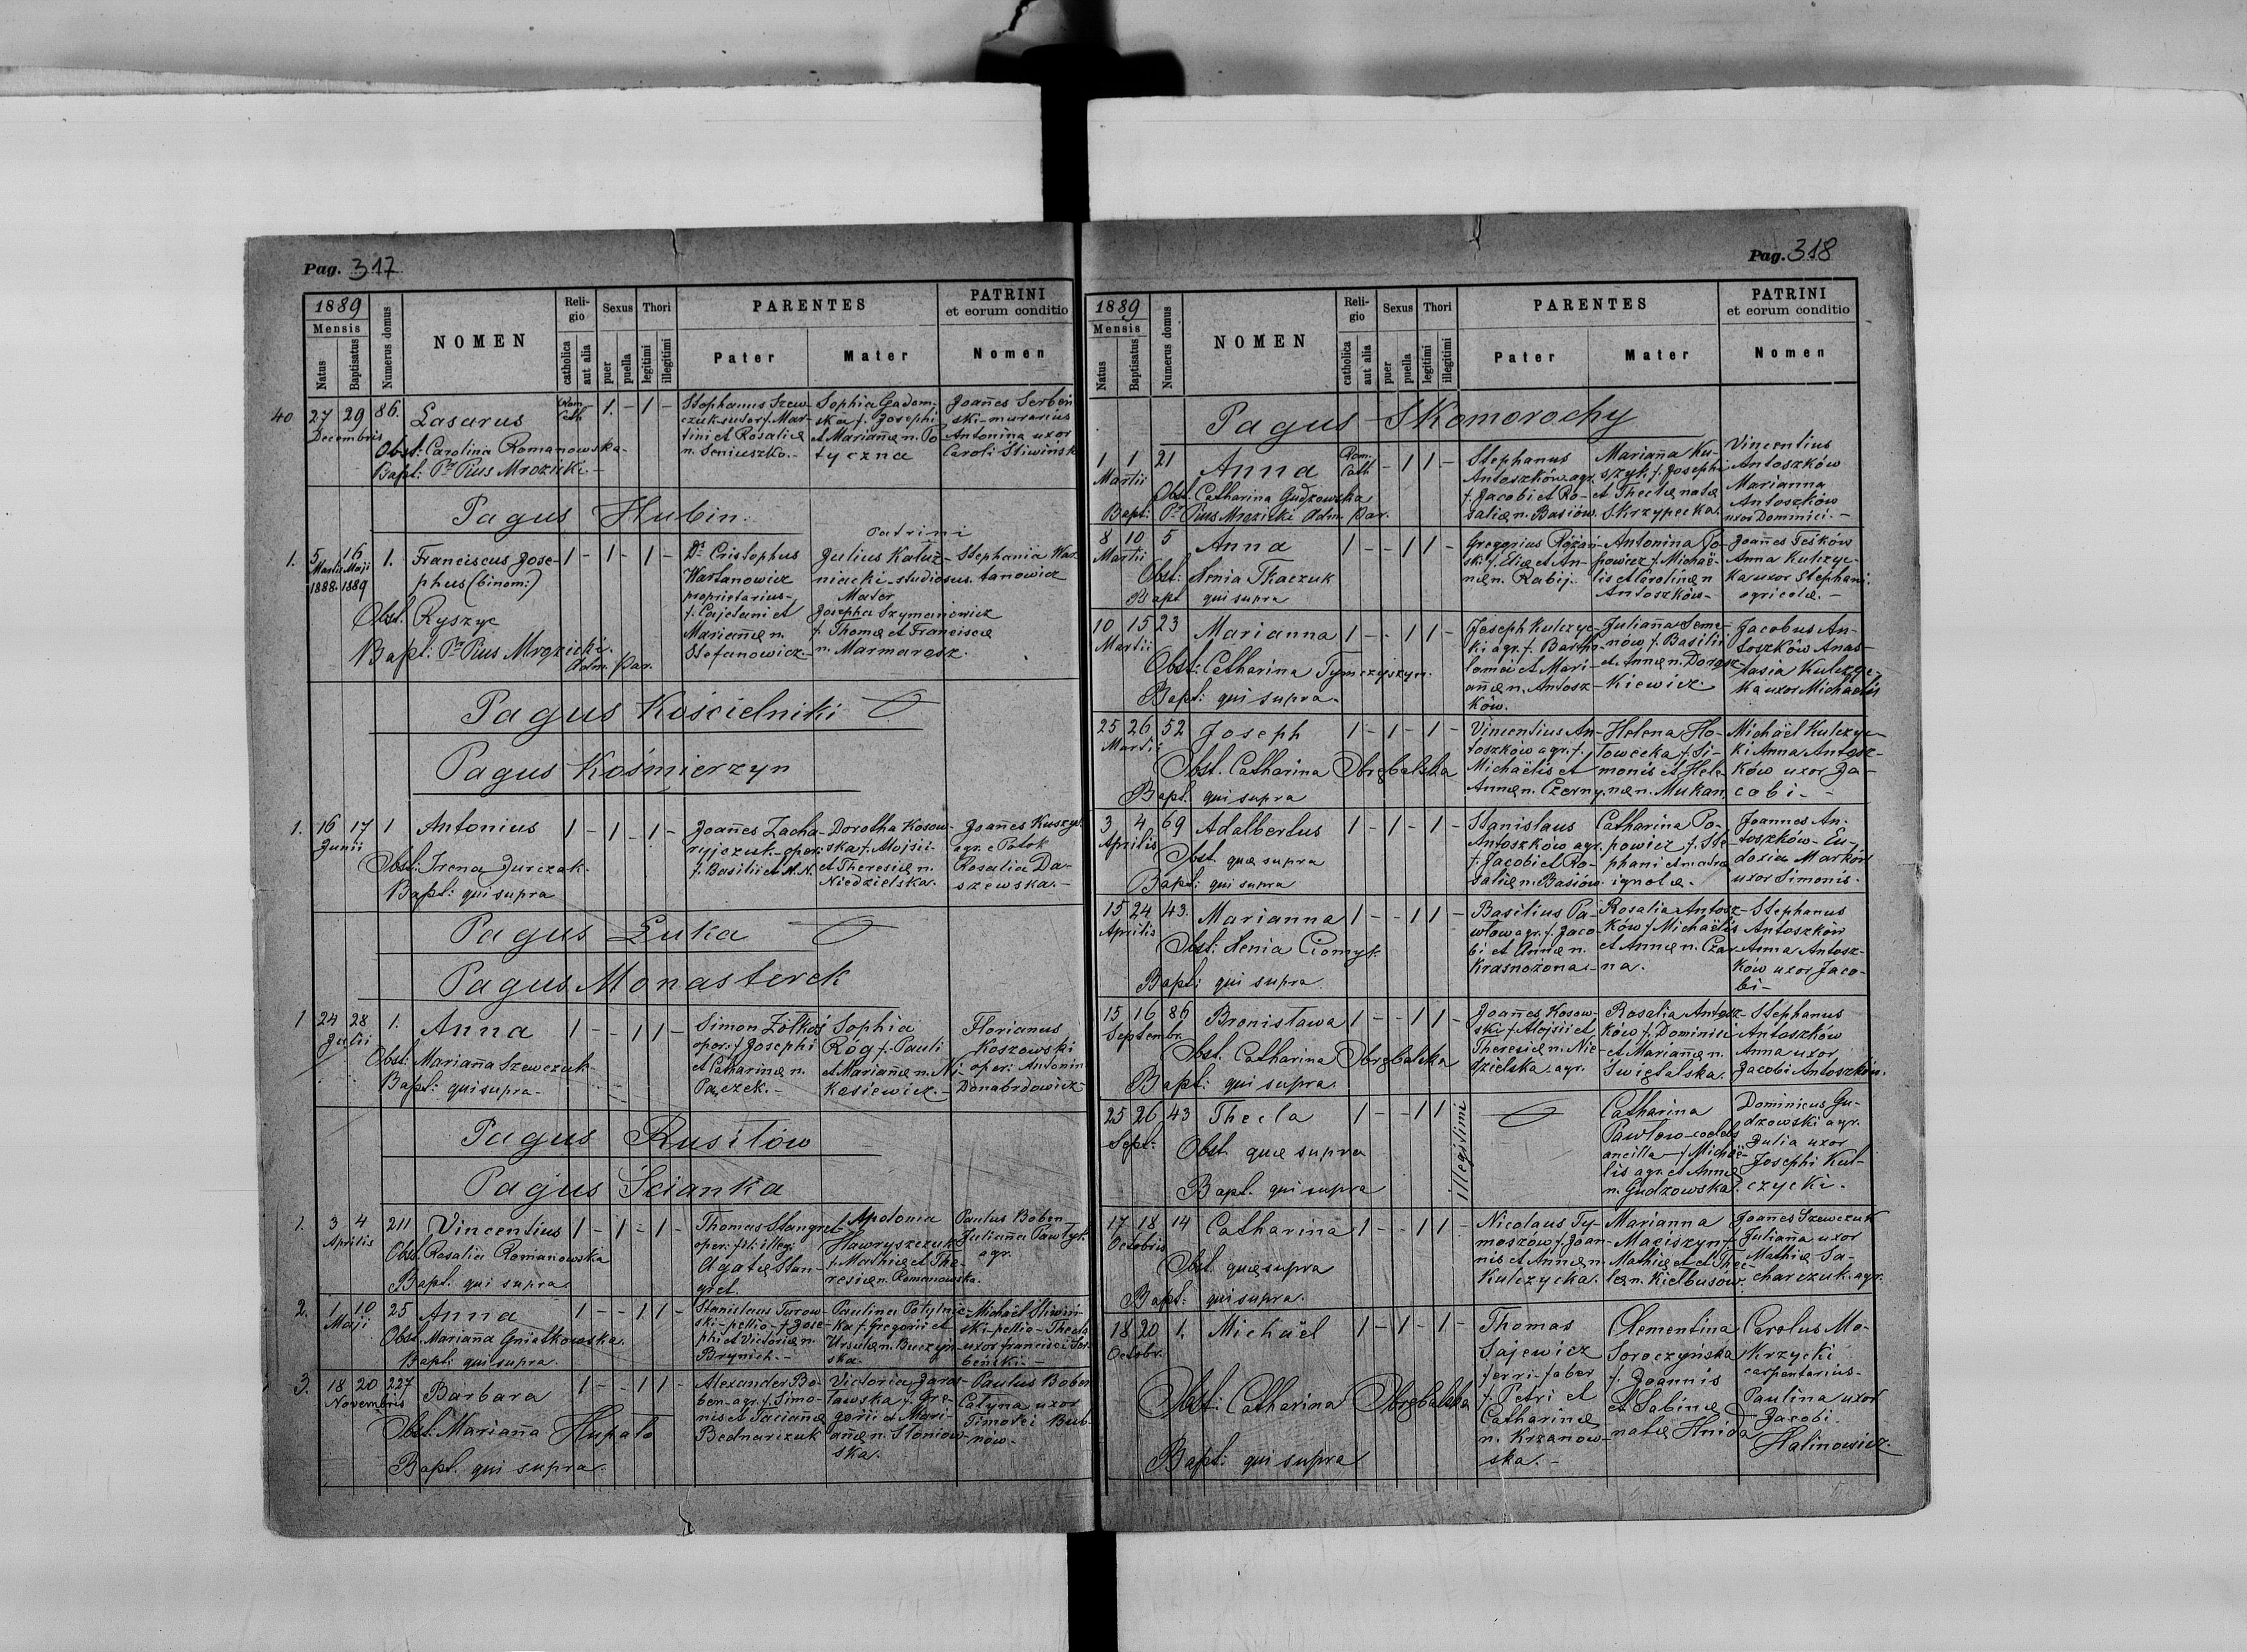 Pag. 317
1889
Mensis
Natus
Baptisatus
Numerus domus
NOMEN
Reli-
gio
catholica
aut alia
Sexus
puer
puella
Thori
legitimi
illegitimi
PARENTES
Pater
Mater
PATRINI
et eorum conditio
Nomen
40 27 29 86. Lasarus Rom. Cath. 1. - 1 -
Decembris
Obst: Carolina Romanowska
Bapt: Pr Pius Mrozicki
Stephanus Szew-
czuk sutor f. Mar-
tini et Rosaliæ
n. Seniuszko.
Sophia Gadom-
ska f. Josephi
et Mariañæ n. Po-
tyczna
Joañes Serben
ski murarius
Antonina uxor
Caroli Sliwiński
Pagus Hubin.
1. 5 16 1. Franciscus Jose- 1 - 1 - 1 -
Martii Maji
1888. 1889
phus (binom:)
Obst. Ryszyc
Bapt: Pr Pius Mrozicki.
Adm. Par.
Dr. Cristophus
Wartanowicz
proprietarius
f. Cajetani et
Mariañæ n.
Stefanowicz
Patrini
Julius Kałuż-
niacki studiosus
Mater
Josepha Szymanowicz
f. Thomæ et Franciscæ
n. Marmarosz.
Stephania War-
tanowicz
Pagus Kościelniki
Pagus Kośmierzyn
1. 16 17 1 Antonius 1 - 1 - 1 -
Junii
Obst: Irena Jurczak.
Bapt: qui supra
Joañes Zacha-
ryjczuk oper:
f. Basilii et N. N.
Dorotha Kosow-
ska f. Alojsii
et Theresiæ n.
Niedzielska.
Joañes Kuszyk
agr. e Potok
Rosalia Da-
szewska.
Pagus Łuka
Pagus Monasterek
1 24 28 1. Anna 1 - - 1 1 -
Julii
Obst: Mariaña Szewczuk
Bapt: qui supra
Simon Żółkoś
oper: f. Josephi
et Catharinæ n.
Paczek.
Sophia
Róg f. Pauli
et Mariañæ n. Ni-
kasiewicz.
Florianus
Koszowski
oper: Antonin
Donabrdowicz
Pagus Rusiłów
Pagus Ścianka
1. 3 4 211 Vincentius 1 - 1 - 1 -
Aprilis
Obst. Rosalia Romanowska
Bapt. qui supra
Thomas Stangret
oper: fil: illeg:
Agatæ Stan-
gret.
Apolonia
Hawryszczuk
f. Mathiæ et The-
resiæ n. Romanowska.
Paulus Boben
Juliaña Pawłyk
agr.
2. 1 10 25 Anna 1 - - 1 1 -
Maji
Obst. Mariaña Gniatkowska.
Bapt: qui supra.
Stanislaus Turow-
ski pellio f. Jose-
phi et Victoriæ n.
Brynich.
Paulina Potylnic-
ka f. Gregorii et
Ursulæ n. Buczyń-
ska.
Michaël Sliwiń-
ski pellio Thecla
uxor Francisci Ser-
beński.
3. 18 20 227 Barbara 1 - - 1 1 -
Novembris
Obst: Mariaña Hupało
Bapt. qui supra.
Alexander Bo-
ben agr. f. Simo-
nis et Tacianæ
Bednarczuk
Victoria Jaros-
ławska f. Gre-
gorii et Mari-
añæ n. Słoniow-
ska.
Paulus Boben
Catyna uxor
Timotei Bub-
nów.
Pag. 318
1889
Mensis
Natus
Baptisatus
Numerus domus
NOMEN
Reli-
gio
catholica
aut alia
Sexus
puer
puella
Thori
legitimi
illegitimi
PARENTES
Pater
Mater
PATRINI
et eorum conditio
Nomen
Pagus Skomorochy
1 1 21 Anna Rom. Cath. - 1 1 -
Martii
Obst. Catharina Gudzowska
Bapt: Pr Pius Mrozicki Adm. Par.
Stephanus
Antoszków agr.
f. Jacobi et Ro-
saliæ n. Basiów
Mariaña Ku-
szyk f. Josephi
et Theclæ natæ
Skrzypecka.
Vincentius
Antoszków
Marianna
Antoszków
uxor Dominici.
8 10 5 Anna 1 - - 1 1 -
Martii
Obst: Xenia Tkaczuk
Bapt qui supra
Gregorius Różań-
ski f. Eliæ et An-
næ n. Rabij.
Antonina Po-
powicz f. Michaë-
lis et Carolinæ n
Antoszków
Joañes Teśków
Anna Kulczyc-
ka uxor Stephani
agricolæ.
10 15 23 Marianna 1 - - 1 1 -
Martii
Obst: Catharina Tymczyszyn.
Bapt: qui supra.
Joseph Kulczyc-
ki agr. f. Bartho-
lomæi et Mari-
añæ n. Antosz-
ków.
Juliaña Seme-
nów f. Basilii
et Annæ n. Dorosz-
kiewicz.
Jacobus An-
toszków Anas-
tasia Kulczyc-
ka uxor Michaëlis
25 26 52 Joseph 1 - 1 - 1 -
Martii
Obst. Catharina Obrębalska
Bapt. qui supra
Vincentius An-
toszków agr. f.
Michaëlis et
Annæ n. Czerny.
Helena Ho-
łowecka f. Si-
monis et Hele-
næ n. Mukan.
Michaël Kulczyc-
ki Anna Antosz-
ków uxor Ja-
cobi
3 4 69 Adalbertus 1 - 1 - 1 -
Aprilis
Obst. quæ supra
Bapt: qui supra
Stanislaus
Antoszków agr.
f. Jacobi et Ro-
saliæ n. Basiów
Catharina Po-
powicz f. Ste-
phani et matre
ignotæ.
Joannes An-
toszków Eu-
doxia Marków
uxor Simonis.
15 24 43. Marianna 1 - - 1 1 -
Aprilis
Obst: Xenia Ciomyk.
Bapt: qui supra
Basilius Pa-
włow agr. f. Jaco-
bi et Annæ n.
Krasnożona
Rosalia Antosz-
ków f. Michaëlis
et Annæ n. Czar-
na.
Stephanus
Antoszków
Anna Antosz-
ków uxor Jaco-
bi
15 16 86 Bronisława 1 - - 1 1 -
Septembr.
Obst. Catharina Obrębalska
Bapt: qui supra.
Joañes Kosow-
ski f. Alojsii et
Theresiæ n. Nie-
dzielska. agr.
Rosalia Antosz-
ków f. Dominici
et Mariañæ n.
Swiętalska.
Stephanus
Antoszków
Anna uxor
Jacobi Antoszków.
25 26 43 Thecla 1 - - 1 1 illegitimi
Sept:
Obst quæ supra
Bapt. qui supra
Catharina
Pawłow cælebs
ancilla f. Michaë-
lis agr. et Annæ
n. Gudzowska.
Dominicus Gu-
dzowski agr.
Julia uxor
Josephi Kul-
czycki.
17 18 14 Catharina 1 - - 1 1 -
Octobris
Obst. quæ supra
Bapt: qui supra.
Nicolaus Ty-
moszów f. Joan-
nis et Annæ n.
Kulczycka.
Marianna
Maciszyn f.
Mathiæ et Thec-
læ n. Kiełbusów.
Joañes Szewczuk
Juliaña uxor
Mathiæ Sa-
charczuk. agr.
18 20 1. Michaël 1 - 1 - 1 -
Octobr.
Obst: Catharina Obrębalska
Bapt: qui supra
Thomas
Sajewicz
ferri-faber
f. Petri et
Catharinæ
n. Krzanow-
ska.
Clementina
Soroczyńska
f. Joannis
et Sabinæ
natæ Hnida
Carolus Mo-
krzycki
carpentarius
Paulina uxor
Jacobi
Halinowicz.